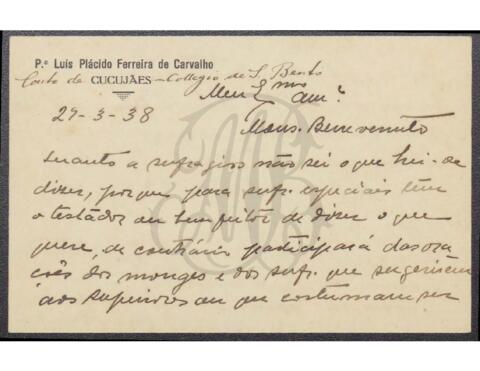 P.e Luís Plácido Ferreira de Carvalho
Couto de CUCUJÃES - Collegio de S. Bento
Meu Exmo am.º
29-3-38
Mons. Benevenuto
Quanto a sufragios não sei o que hei-de
dizer, porque para sufr. especiais têm
o testador ou bemfeitor de dizer o que
quere, de contrário participará das ora
ções dos monges e dos sufr. que sugerirem
aos superiores ou que costumam ser